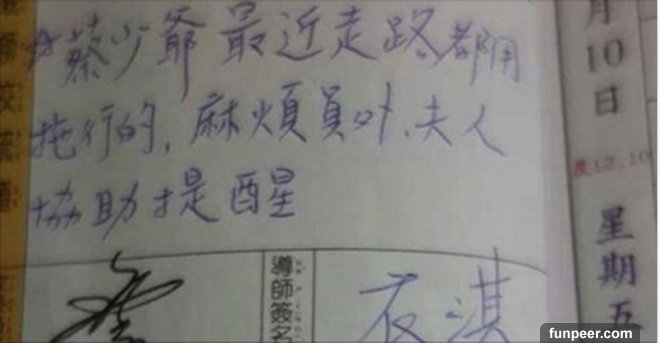 ☆蔡少爺最近走路都用
拖行的,麻煩員外、夫人
協助提醒
導師簽名
月10日
農12.10
星期五
funpeer.com